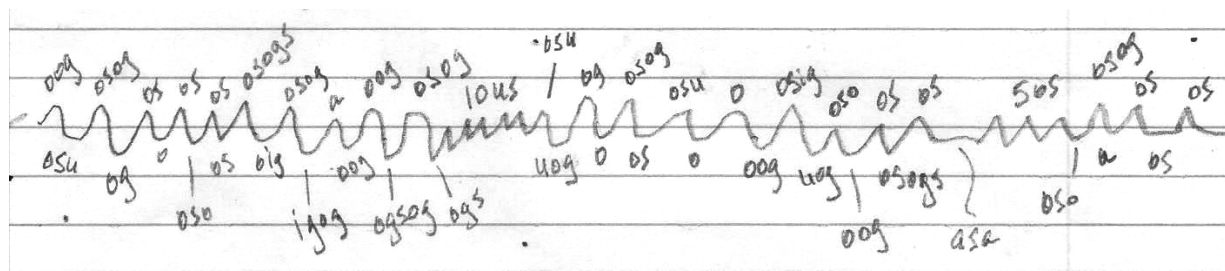 osu
oog osog os os os osogs osog a oog osog 10us og osog osu o osig oso os os 5os osog os os
osu og o os oig oog uog o os o oog uog osogs a os
oso igog ogsog ogs oog asa oso